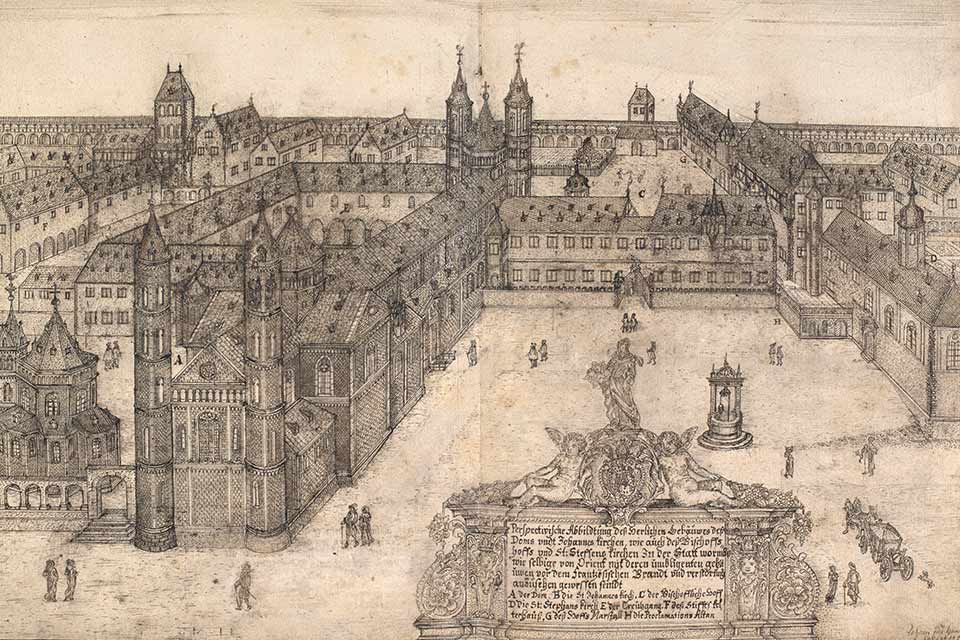 Perspectivische Abbildtung deß Herlichen Gebäuwes deß
Doms vndt Johannes kirchen, wie auch deß Bischoffs
hoffs vnd St: Steffens kirchen Zu der Statt worms
wie selbige von Orient mit deren vmbligenden gebä
uwen vor dem Frantzösischen Brandt vnd verstörung
anzusehen gewessen seindt
A der Dom. B die St Johannes kirch, C der Bischoffliche Hoff
D die St: Stephans kirch E der Creutzgang. F deß Stiffts
G deß Hoffs Marstall H die Proclamations Altan
A
C
D
E
F
G
H